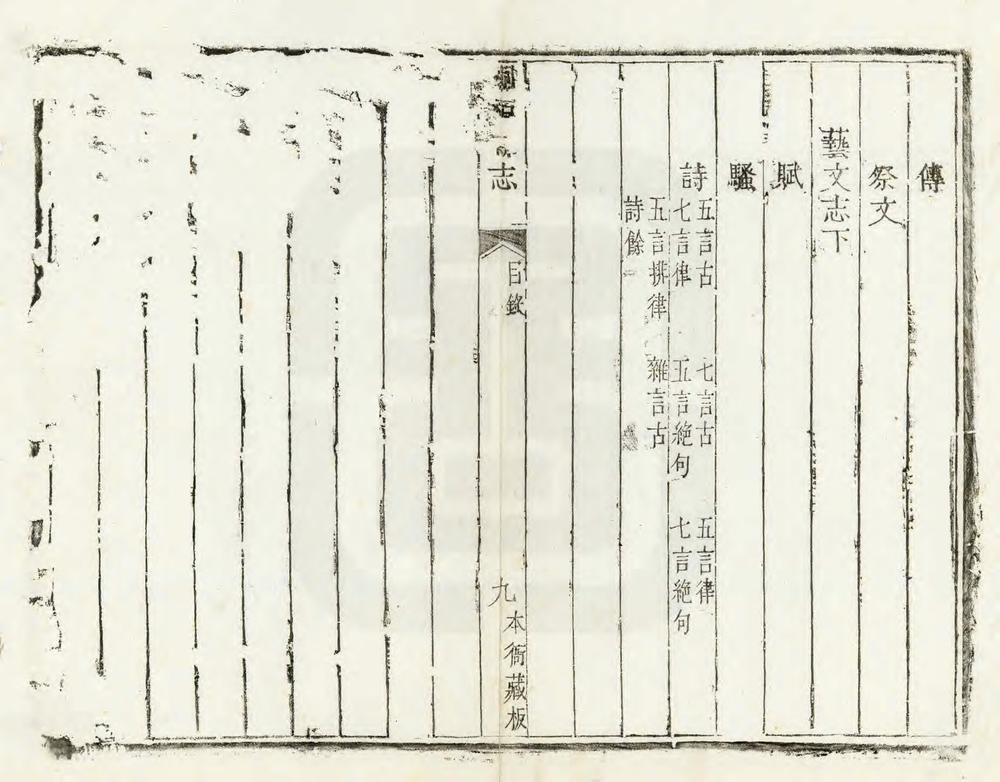 傳
祭文
藝文志下
賦
騷
詩
五言古 七言古 五言律
七言律 五言絶句 七言絶句
五言排律 雜言古
詩餘
志 目錄 九 本衙藏板